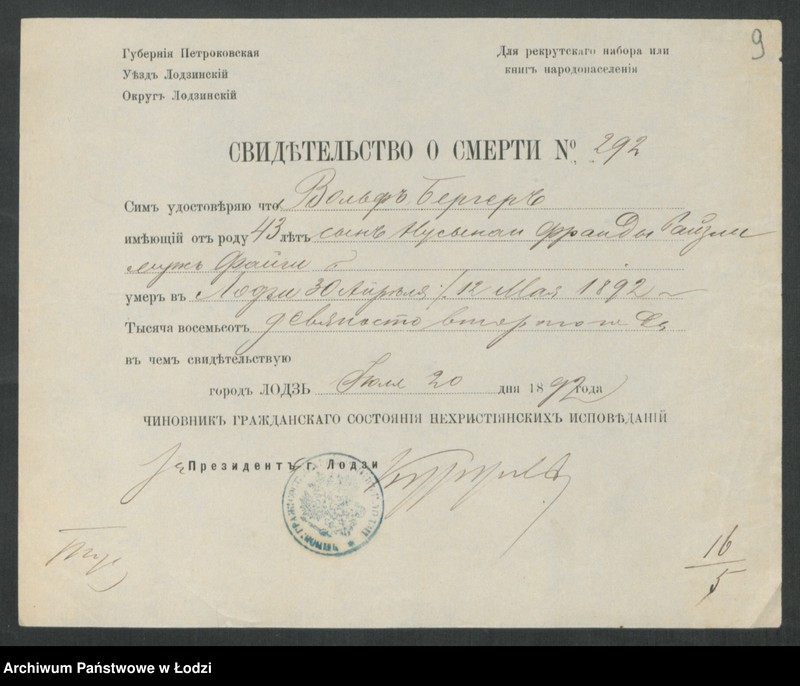 9
Губернія Петроковская
Уѣздъ Лодзинскій
Округъ Лодзинскій
Для рекрутскаго набора или
книгъ народонаселенія
СВИДѢТЕЛЬСТВО О СМЕРТИ № 292
Симъ удостовѣряю что Вольфъ Бергеръ
имѣющій отъ роду 43 лѣтъ сынъ Франды Райзли
мужъ Файги
умеръ въ Лодзи 30 Апрѣля / 12 Мая 1892
Тысяча восемьсотъ девяносто второго
въ чемъ свидѣтельствую
городъ ЛОДЗЬ Іюля 20 дня 1892 года
ЧИНОВНИКЪ ГРАЖДАНСКАГО СОСТОЯНІЯ НЕХРИСТІЯНСКИХЪ ИСПОВѢДАНІЙ
За Президентъ г. Лодзи
16
5
Archiwum Państwowe w Łodzi